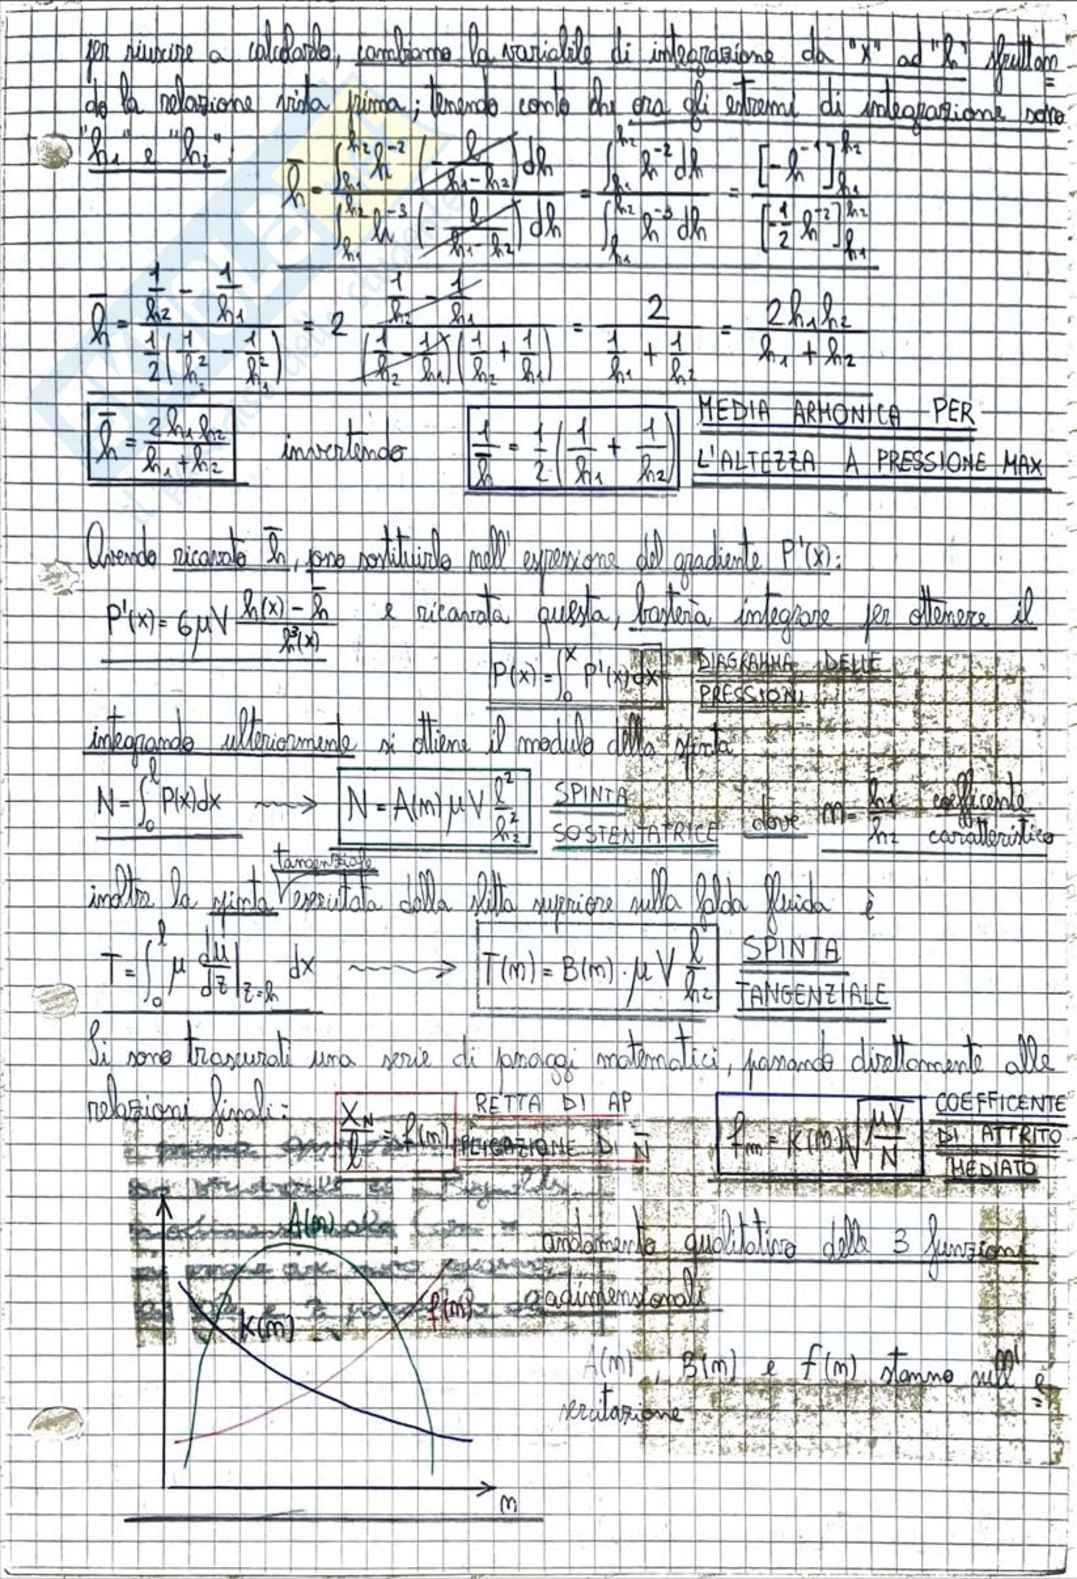 per riuscire a calcolarlo, cambiamo la variabile di integrazione da "x" ad "h" sfruttan=
do la relazione vista prima; tenendo conto che ora gli estremi di integrazione sono
"h₁" e "h₂":
h̄ = ∫_{h₁}^{h₂} h⁻² (-l/(h₁-h₂)) dh / ∫_{h₁}^{h₂} h⁻³ (-l/(h₁-h₂)) dh = ∫_{h₁}^{h₂} h⁻² dh / ∫_{h₁}^{h₂} h⁻³ dh = [-h⁻¹]_{h₁}^{h₂} / [-1/2 h⁻²]_{h₁}^{h₂}
h̄ = (1/h₂ - 1/h₁) / (1/2 (1/h₂² - 1/h₁²)) = 2 (1/h₂ - 1/h₁) / ((1/h₂ - 1/h₁)(1/h₂ + 1/h₁)) = 2 / (1/h₁ + 1/h₂) = 2h₁h₂ / (h₁ + h₂)
h̄ = 2h₁h₂ / (h₁ + h₂) invertendo 1/h̄ = 1/2 (1/h₁ + 1/h₂) MEDIA ARMONICA PER
L'ALTEZZA A PRESSIONE MAX
Avendo ricavato h̄, posso sostituirlo nell'espressione del gradiente P'(x):
P'(x) = 6μV (h(x) - h̄) / h³(x) e ricavata questa, basterà integrare per ottenere il
P(x) = ∫₀ˣ P'(x) dx DIAGRAMMA DELLE
PRESSIONI
integrando ulteriormente si ottiene il modulo della spinta
N = ∫₀ˡ P(x) dx ⇝ N = A(m) μ V l²/h₂² SPINTA
SOSTENTATRICE dove m = h₁/h₂ coefficente
caratteristico
tangenziale
inoltre la spinta esercitata dalla slitta superiore sulla falda fluida è
T = ∫₀ˡ μ du/dz |_{z=h} dx ⇝ T(m) = B(m) · μ V l/h₂ SPINTA
TANGENZIALE
Si sono trascurati una serie di passaggi matematici, passando direttamente alle
relazioni finali: X_N/l = f(m) RETTA DI AP
PLICAZIONE DI N̄
f_m = K(m) √(μV/N) COEFFICENTE
DI ATTRITO
MEDIATO
A(m)
K(m)
f(m)
m
andamento qualitativo delle 3 funzioni
adimensionali
A(m), B(m) e f(m) stanno nell' e=
sercitazione